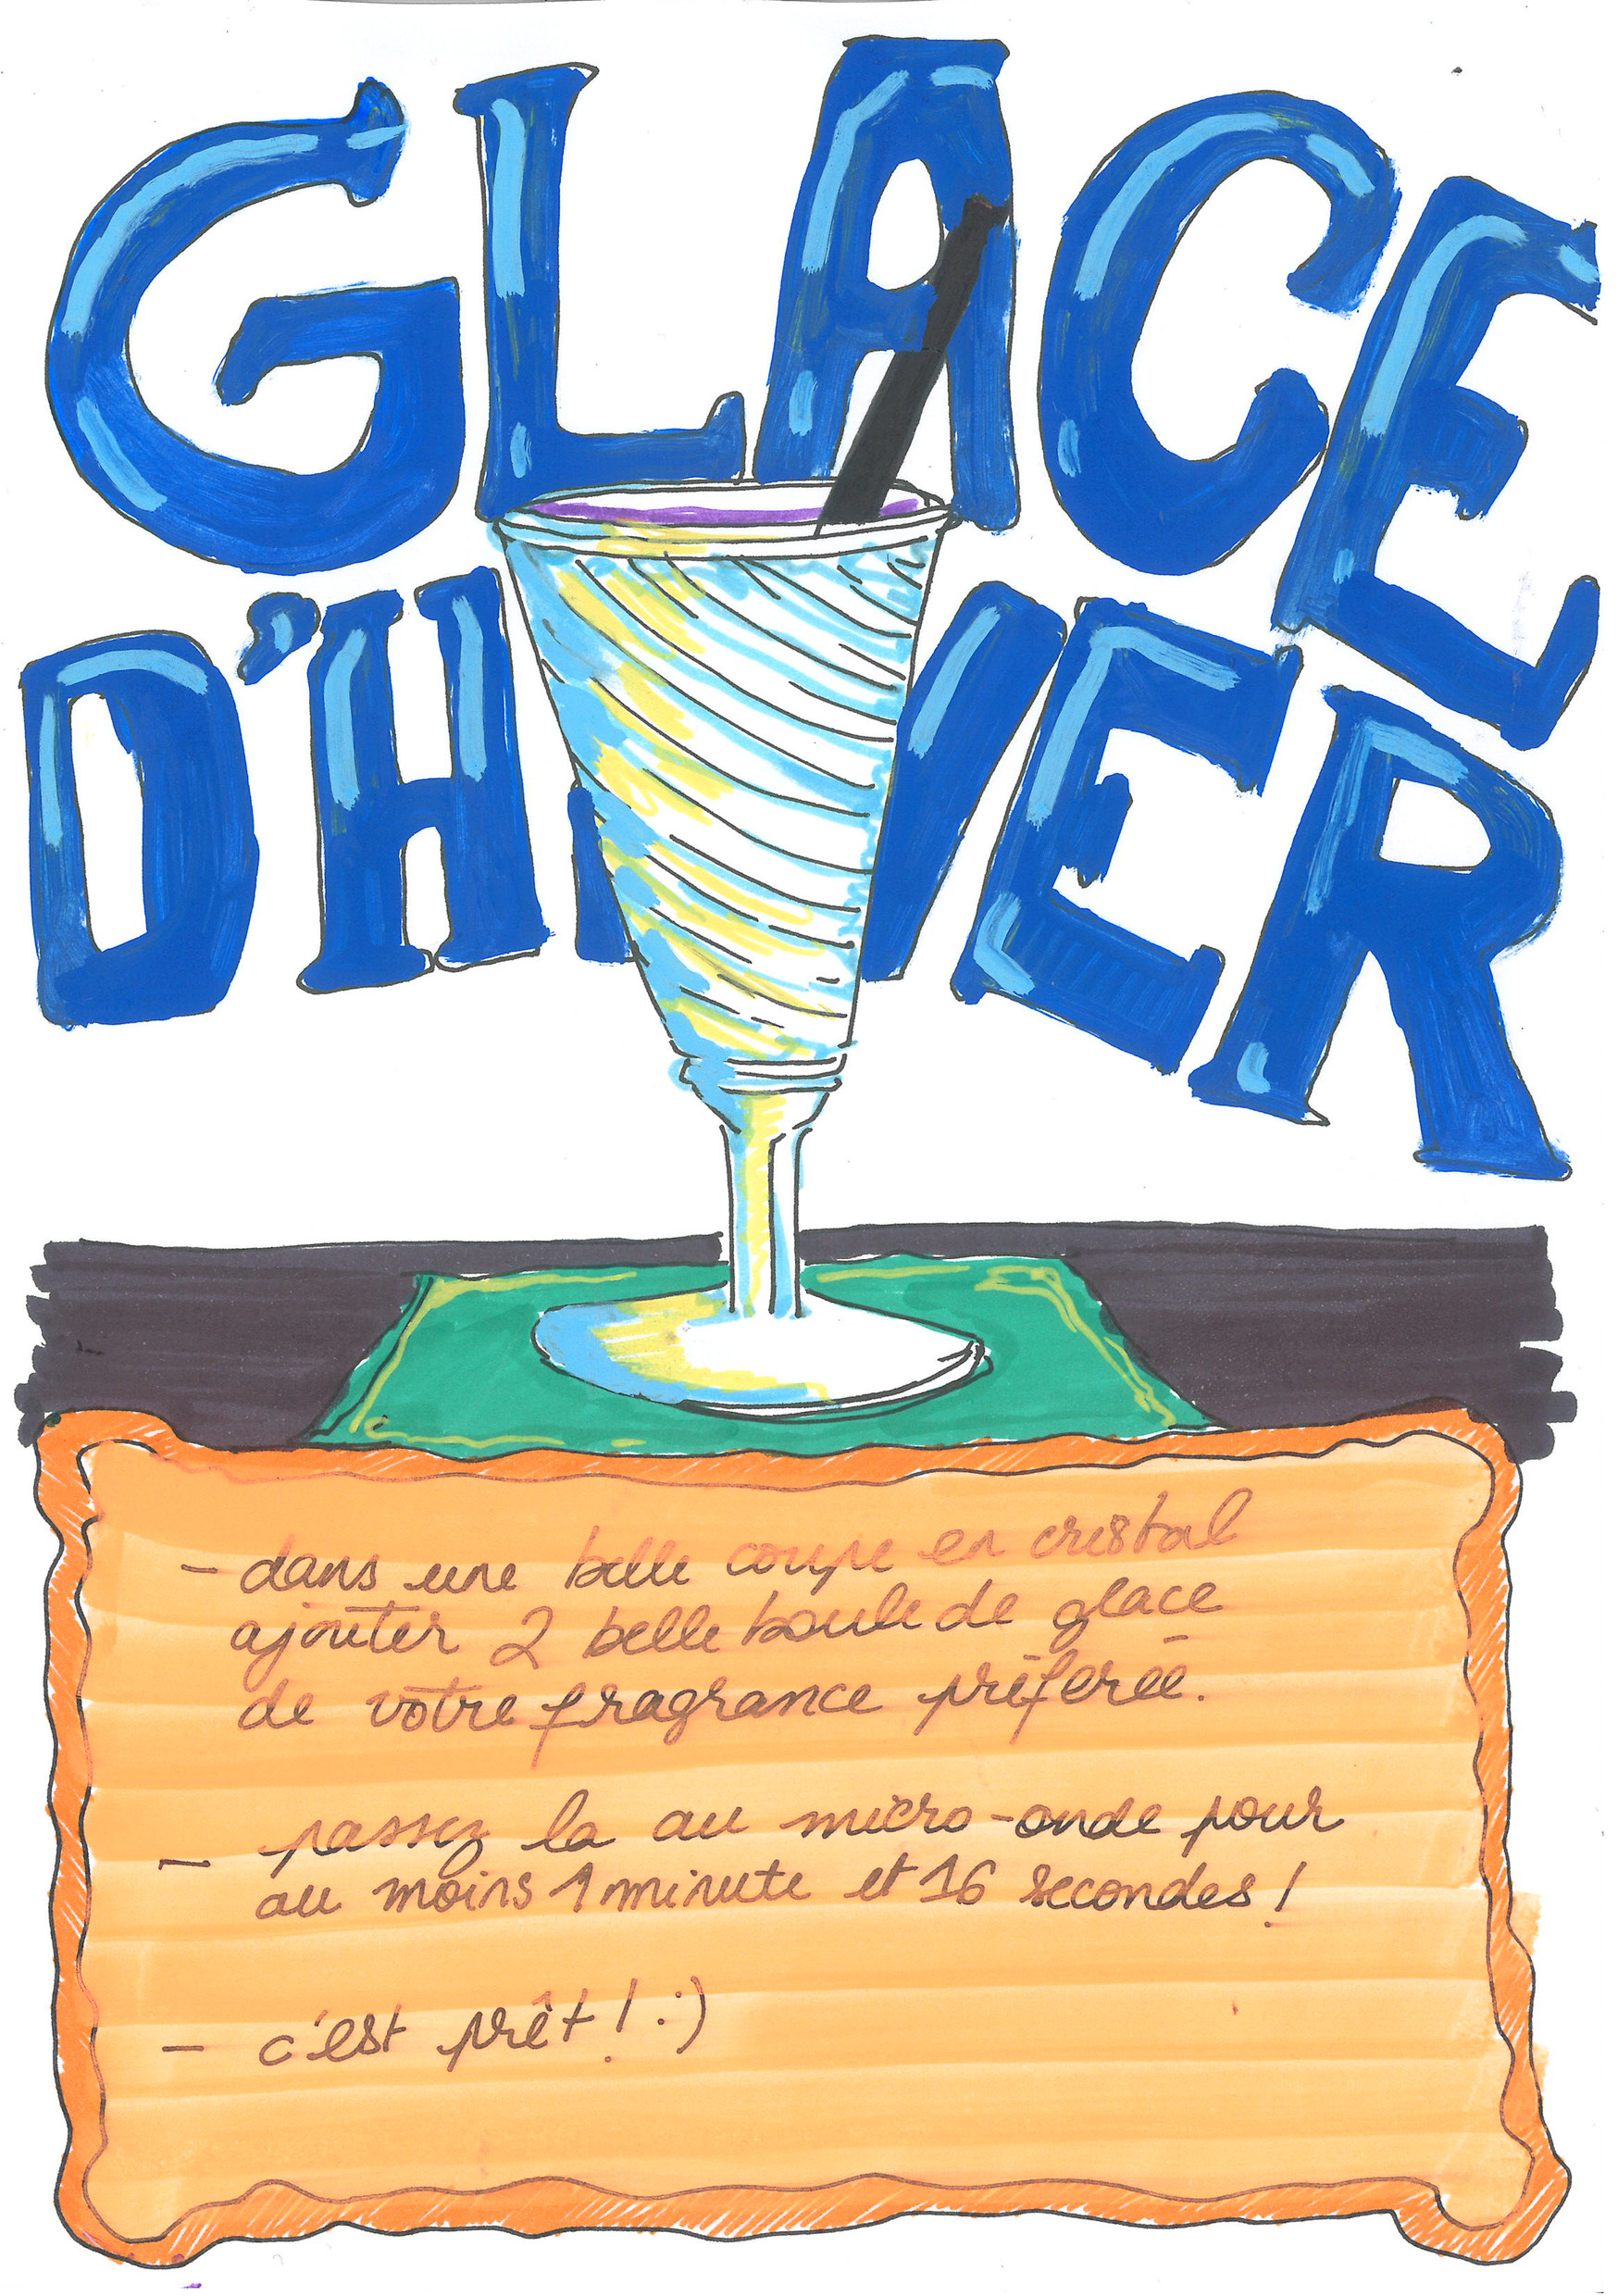 GLACE
D'HIVER
- dans une belle coupe en cristal
ajouter 2 belle boule de glace
de votre fragrance préferée.
- passez la au micro-onde pour
au moins 1 minute et 16 secondes !
- c'est prêt ! :)